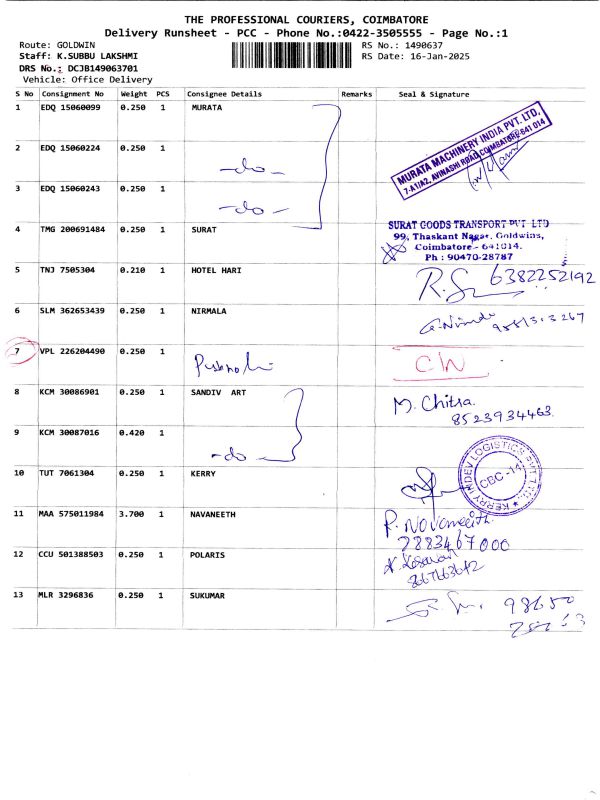 THE PROFESSIONAL COURIERS, COIMBATORE
Delivery Runsheet - PCC - Phone No.:0422-3505555 - Page No.:1
Route: GOLDWIN RS No.: 1490637
Staff: K.SUBBU LAKSHMI RS Date: 16-Jan-2025
DRS No.: DCJB149063701
Vehicle: Office Delivery
S No Consignment No Weight PCS Consignee Details Remarks Seal & Signature
1 EDQ 15060099 0.250 1 MURATA
MURATA MACHINERY INDIA PVT. LTD,
7-A1/A2, AVINASHI ROAD, COIMBATORE-641 014
2 EDQ 15060224 0.250 1 -do-
3 EDQ 15060243 0.250 1 -do-
4 TMG 200691484 0.250 1 SURAT
SURAT GOODS TRANSPORT PVT LTD
99, Thaskant Nagar, Goldwins,
Coimbatore - 641014.
Ph : 90470-28787
5 TNJ 7505304 0.210 1 HOTEL HARI 6382252192
6 SLM 362653439 0.250 1 NIRMALA
7 VPL 226204490 0.250 1 CW
8 KCM 30086901 0.250 1 SANDIV ART M. Chitra.
8523934463.
9 KCM 30087016 0.420 1 -do-
10 TUT 7061304 0.250 1 KERRY
KERRY INDEV LOGISTICS PVT. LTD.
CBC-14
11 MAA 575011984 3.700 1 NAVANEETH P. Novaneeith.
7883467000
12 CCU 501388503 0.250 1 POLARIS
8667663642
13 MLR 3296836 0.250 1 SUKUMAR 98650